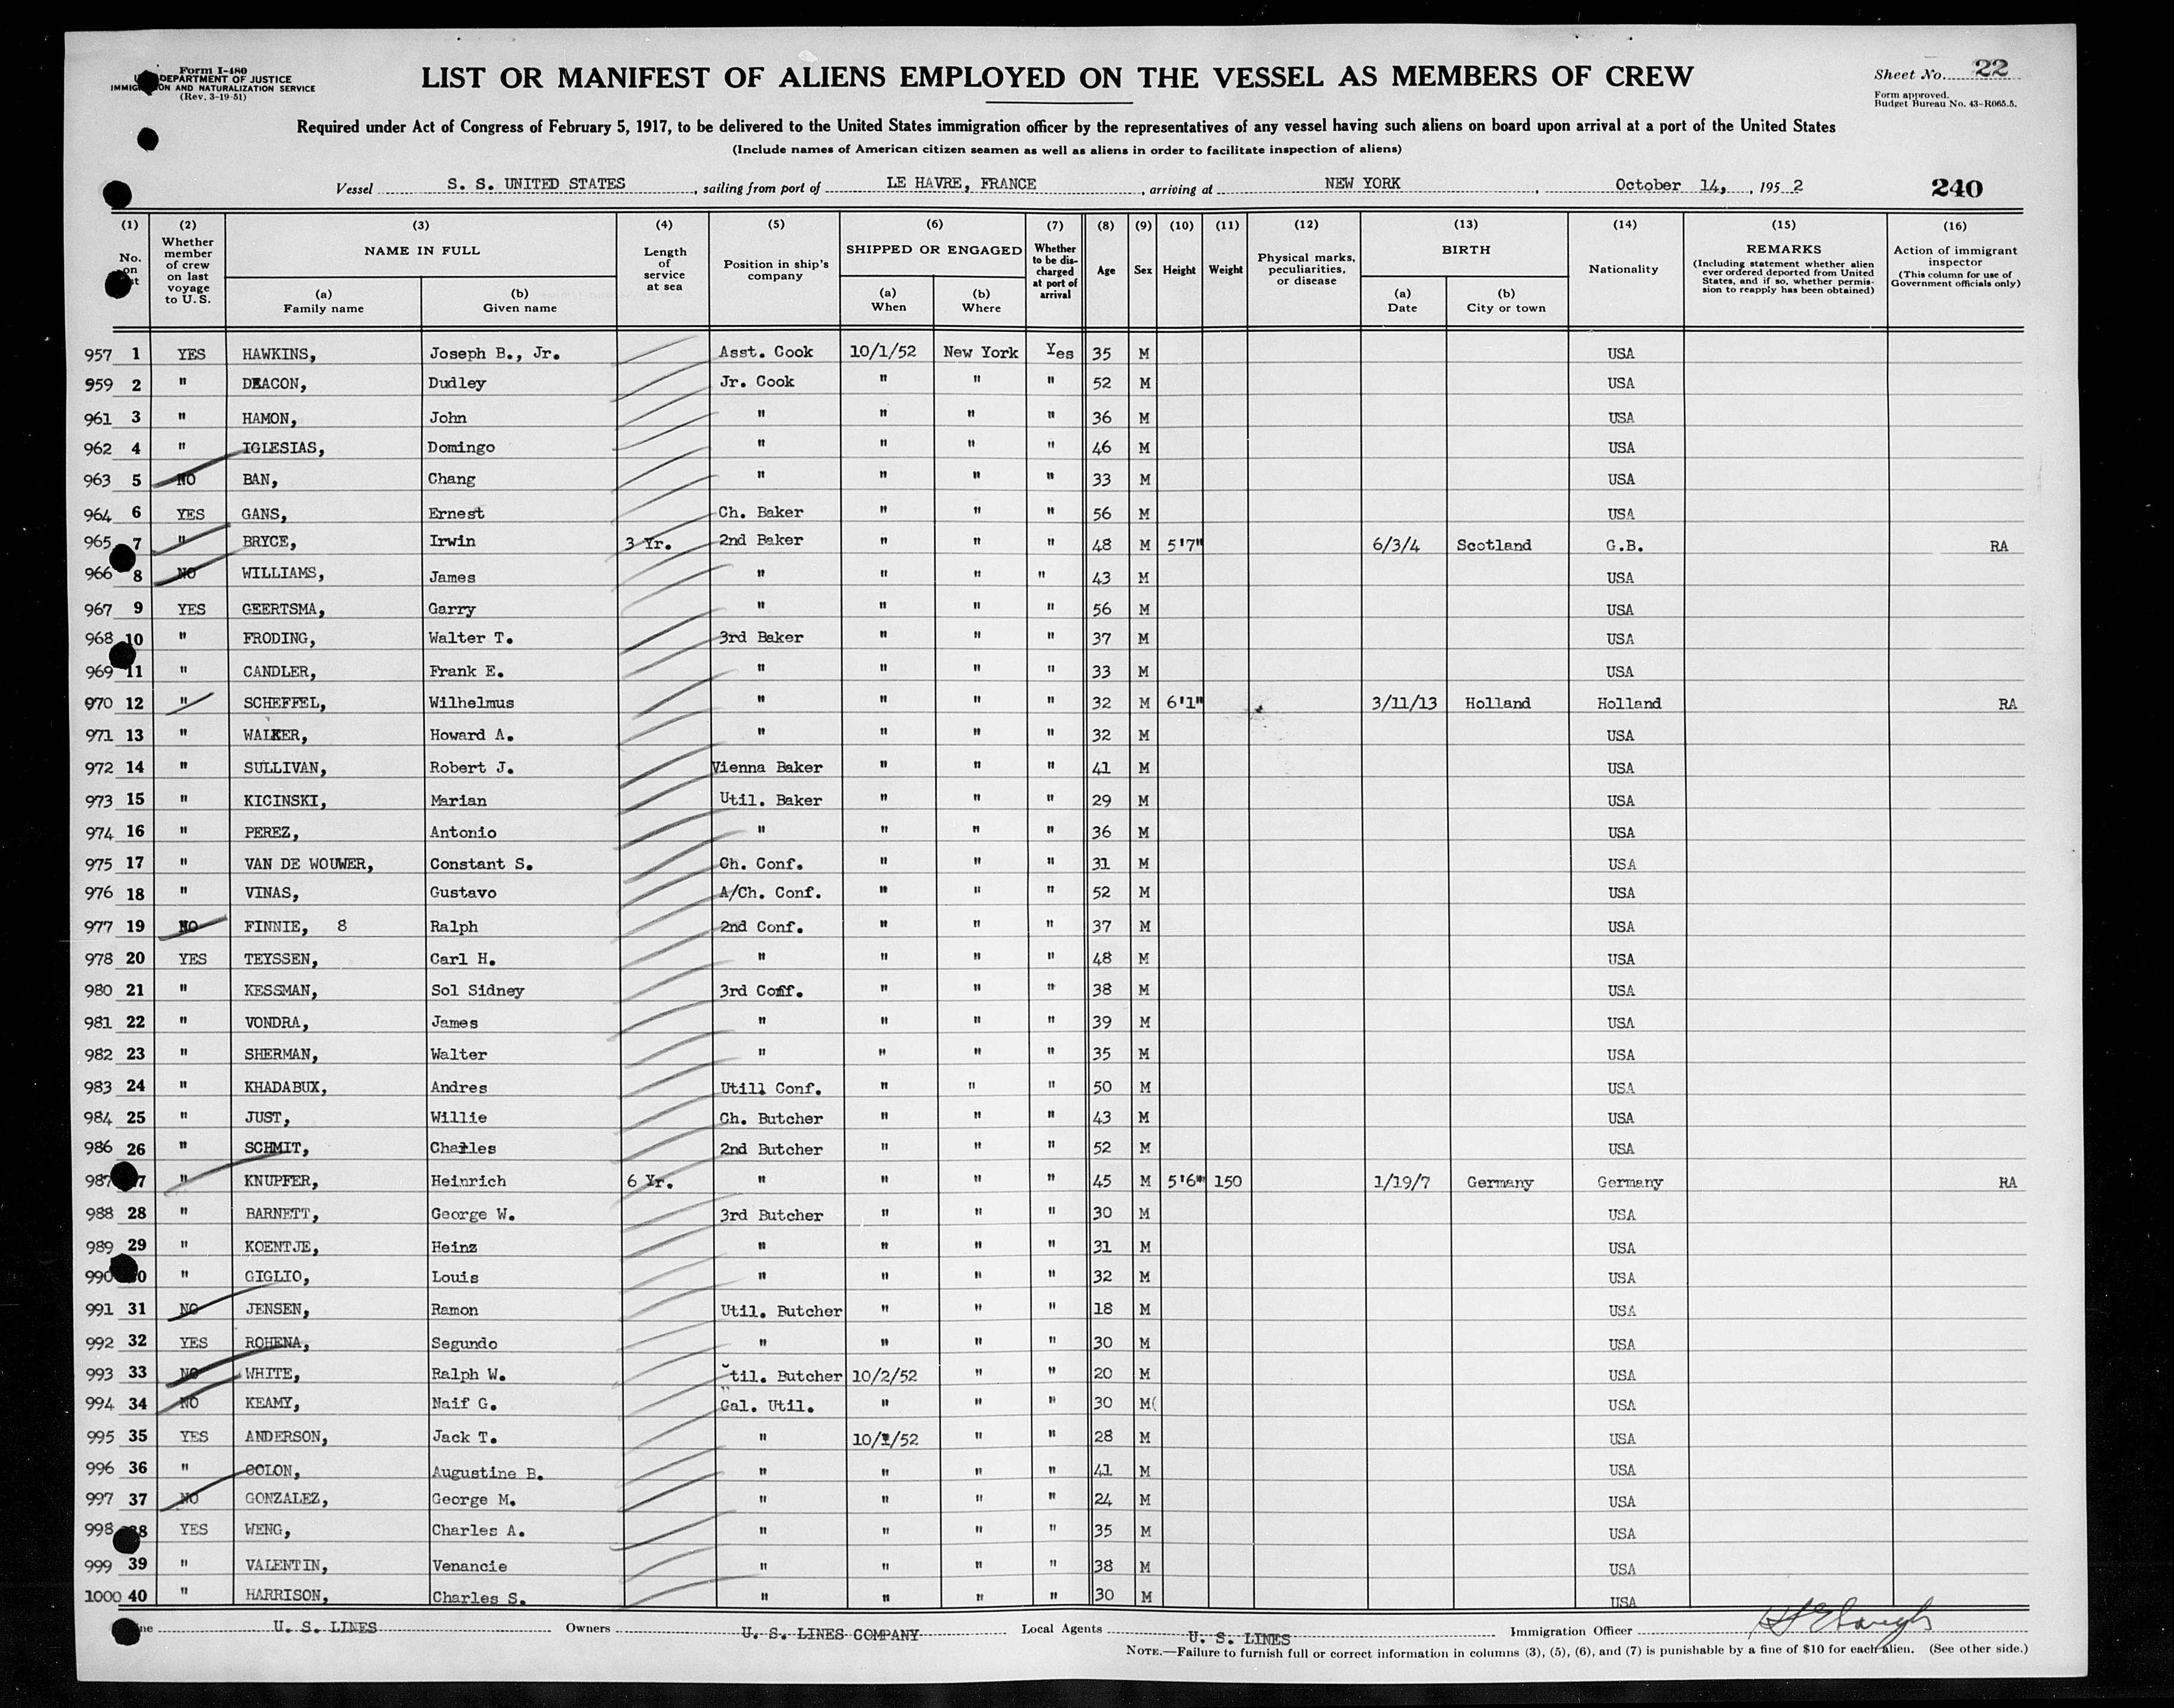 Form I-480
U. S. DEPARTMENT OF JUSTICE
IMMIGRATION AND NATURALIZATION SERVICE
(Rev. 3-19-51)
LIST OR MANIFEST OF ALIENS EMPLOYED ON THE VESSEL AS MEMBERS OF CREW
Sheet No. 22
Form approved.
Budget Bureau No. 43-R065.5.
Required under Act of Congress of February 5, 1917, to be delivered to the United States immigration officer by the representatives of any vessel having such aliens on board upon arrival at a port of the United States
(Include names of American citizen seamen as well as aliens in order to facilitate inspection of aliens)
Vessel S. S. UNITED STATES, sailing from port of LE HAVRE, FRANCE, arriving at NEW YORK, October 14, 1952
240
(1) No. on list
(2) Whether member of crew on last voyage to U.S.
(3) NAME IN FULL (a) Family name (b) Given name
(4) Length of service at sea
(5) Position in ship's company
(6) SHIPPED OR ENGAGED (a) When (b) Where
(7) Whether to be discharged at port of arrival
(8) Age
(9) Sex
(10) Height
(11) Weight
(12) Physical marks, peculiarities, or disease
(13) BIRTH (a) Date (b) City or town
(14) Nationality
(15) REMARKS (Including statement whether alien ever ordered deported from United States, and if so, whether permission to reapply has been obtained)
(16) Action of immigrant inspector (This column for use of Government officials only)
957 1 YES HAWKINS, Joseph B., Jr. Asst. Cook 10/1/52 New York Yes 35 M USA
959 2 " DEACON, Dudley Jr. Cook " " " 52 M USA
961 3 " HAMON, John " " " " 36 M USA
962 4 " IGLESIAS, Domingo " " " " 46 M USA
963 5 NO BAN, Chang " " " " 33 M USA
964 6 YES GANS, Ernest Ch. Baker " " " 56 M USA
965 7 " BRYCE, Irwin 3 Yr. 2nd Baker " " " 48 M 5'7" 6/3/4 Scotland G.B. RA
966 8 NO WILLIAMS, James " " " " 43 M USA
967 9 YES GEERTSMA, Garry " " " " 56 M USA
968 10 " FRODING, Walter T. 3rd Baker " " " 37 M USA
969 11 " CANDLER, Frank E. " " " " 33 M USA
970 12 " SCHEFFEL, Wilhelmus " " " " 32 M 6'1" 3/11/13 Holland Holland RA
971 13 " WALKER, Howard A. " " " " 32 M USA
972 14 " SULLIVAN, Robert J. Vienna Baker " " " 41 M USA
973 15 " KICINSKI, Marian Util. Baker " " " 29 M USA
974 16 " PEREZ, Antonio " " " " 36 M USA
975 17 " VAN DE WOUWER, Constant S. Ch. Conf. " " " 31 M USA
976 18 " VINAS, Gustavo A/Ch. Conf. " " " 52 M USA
977 19 NO FINNIE, 8 Ralph 2nd Conf. " " " 37 M USA
978 20 YES TEYSSEN, Carl H. " " " " 48 M USA
980 21 " KESSMAN, Sol Sidney 3rd Conf. " " " 38 M USA
981 22 " VONDRA, James " " " " 39 M USA
982 23 " SHERMAN, Walter " " " " 35 M USA
983 24 " KHADABUX, Andres Utill Conf. " " " 50 M USA
984 25 " JUST, Willie Ch. Butcher " " " 43 M USA
986 26 " SCHMIT, Charles 2nd Butcher " " " 52 M USA
987 27 " KNUPFER, Heinrich 6 Yr. " " " " 45 M 5'6" 150 1/19/7 Germany Germany RA
988 28 " BARNETT, George W. 3rd Butcher " " " 30 M USA
989 29 " KOENTJE, Heinz " " " " 31 M USA
990 30 " GIGLIO, Louis " " " " 32 M USA
991 31 NO JENSEN, Ramon Util. Butcher " " " 18 M USA
992 32 YES ROHENA, Segundo " " " " 30 M USA
993 33 NO WHITE, Ralph W. Util. Butcher 10/2/52 " " 20 M USA
994 34 NO KEAMY, Naif G. Gal. Util. " " " 30 M( USA
995 35 YES ANDERSON, Jack T. " 10/1/52 " " 28 M USA
996 36 " COLON, Augustine B. " " " " 41 M USA
997 37 NO GONZALEZ, George M. " " " " 24 M USA
998 38 YES WENG, Charles A. " " " " 35 M USA
999 39 " VALENTIN, Venancie " " " " 38 M USA
1000 40 " HARRISON, Charles S. " " " " 30 M USA
Line U. S. LINES Owners U. S. LINES COMPANY Local Agents U. S. LINES Immigration Officer
NOTE.—Failure to furnish full or correct information in columns (3), (5), (6), and (7) is punishable by a fine of $10 for each alien. (See other side.)